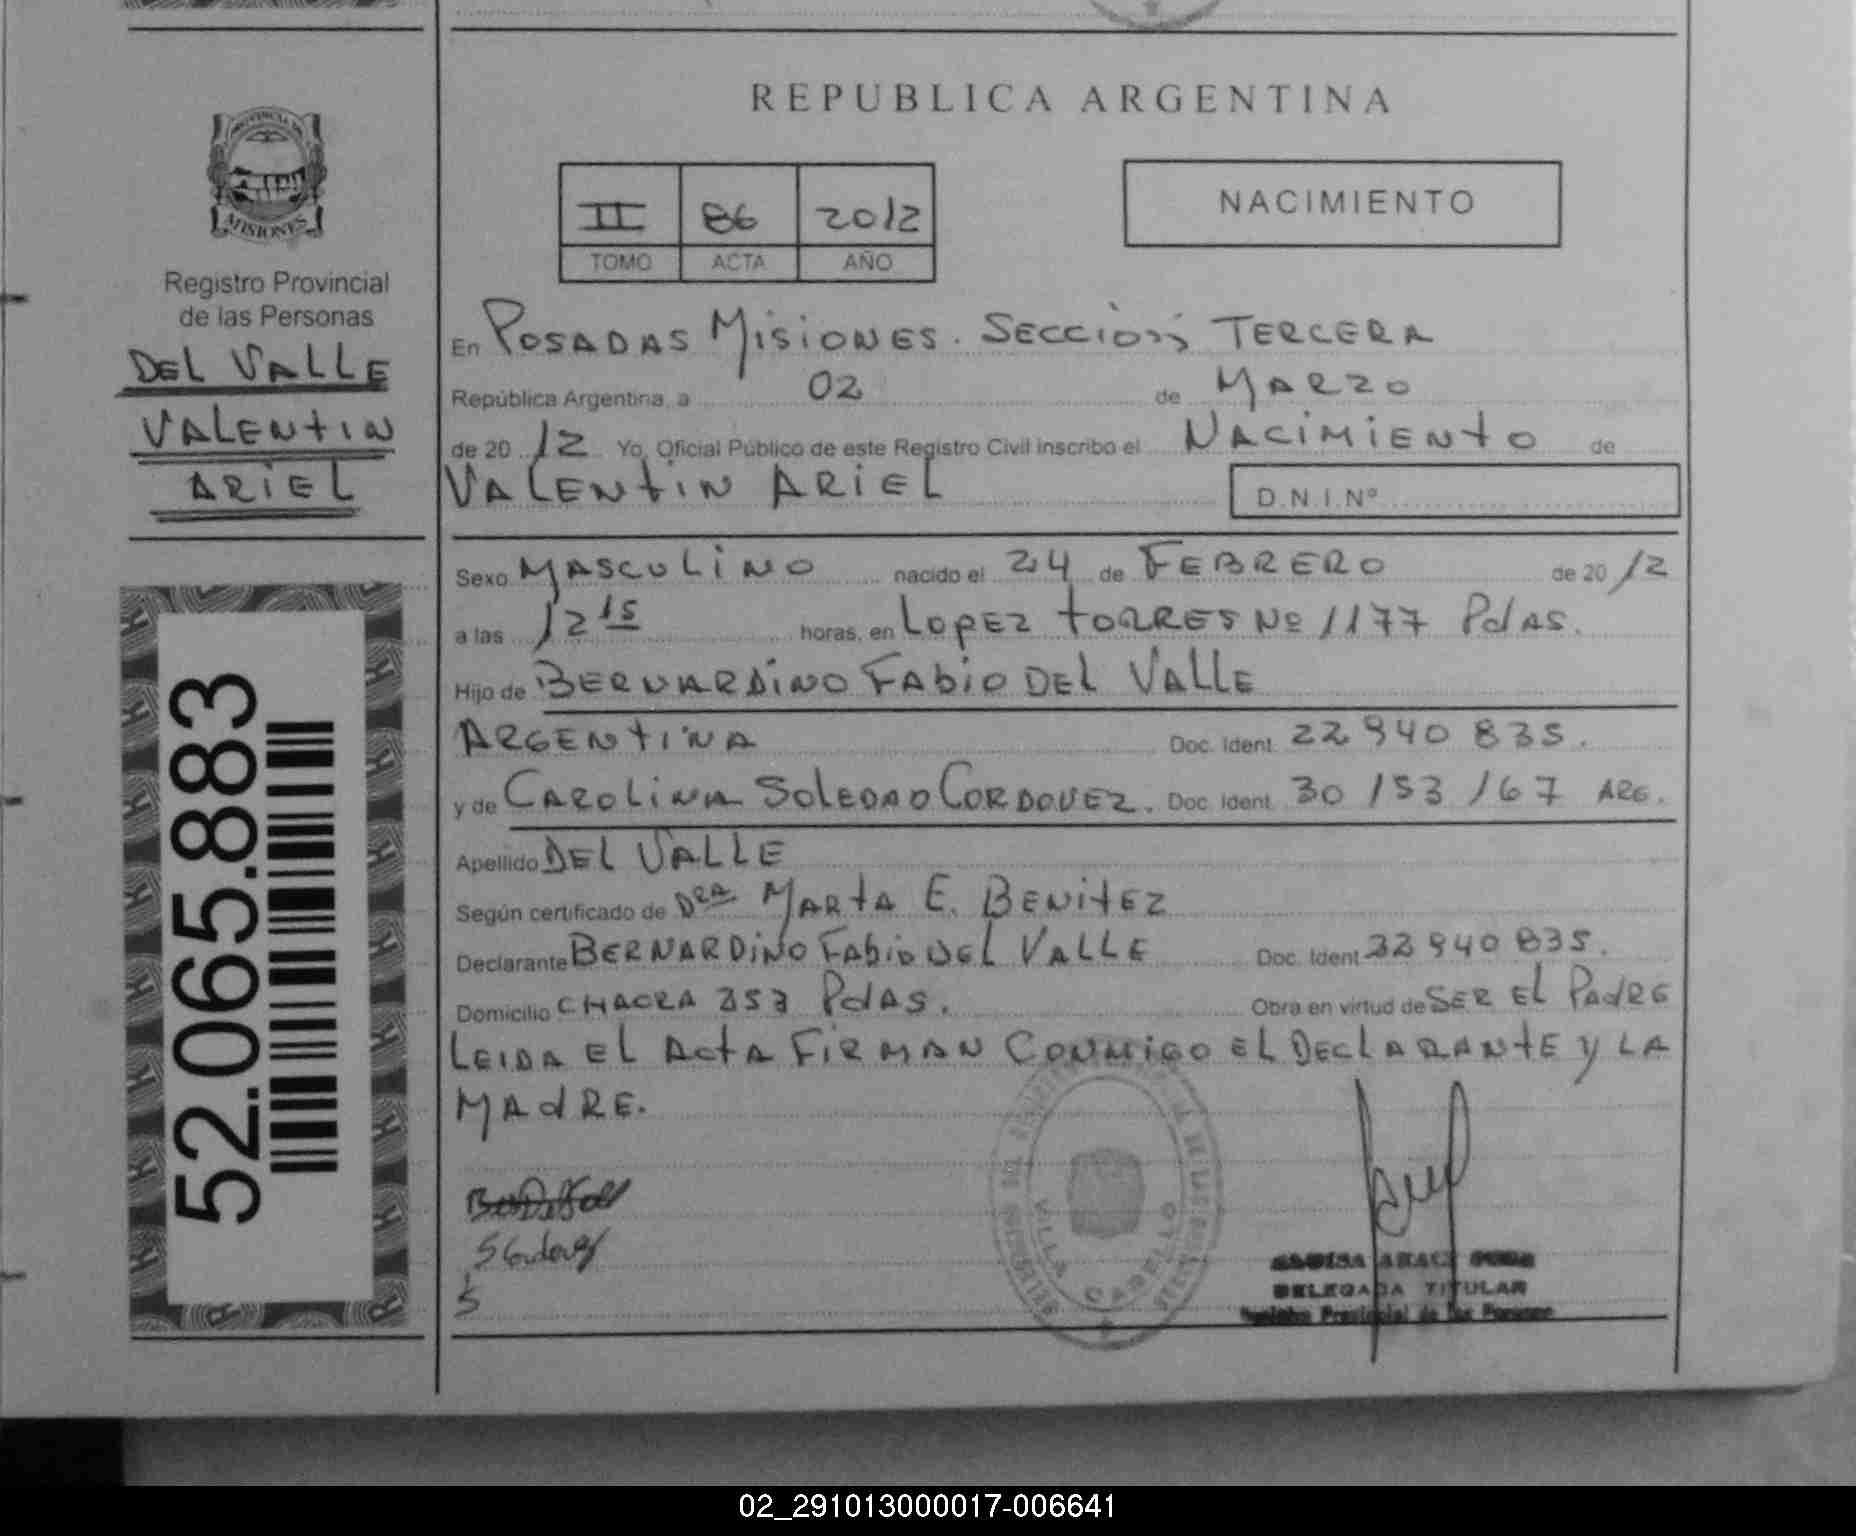 REPUBLICA ARGENTINA
II 86 2012
TOMO ACTA AÑO
NACIMIENTO
PROVINCIA DE
MISIONES
Registro Provincial
de las Personas
DEL VALLE
VALENTIN
ARIEL
52.065.883
En POSADAS MISIONES. SECCION TERCERA
República Argentina, a 02 de MARZO
de 20 12 Yo, Oficial Público de este Registro Civil inscribo el NACIMIENTO de
VALENTIN ARIEL D.N.I.Nº
Sexo MASCULINO nacido el 24 de FEBRERO de 20 12
a las 12 15 horas, en LOPEZ TORRES Nº 1177 PdAS.
Hijo de BERNARDINO FABIO DEL VALLE
ARGENTINA Doc. Ident. 22 940 835.
y de CAROLINA SOLEDAD CORDOVEZ. Doc. Ident. 30 153 167 ARG.
Apellido DEL VALLE
Según certificado de DRA MARTA E. BENITEZ
Declarante BERNARDINO FABIO DEL VALLE Doc. Ident. 22 940 835.
Domicilio CHACRA 253 PdAS. Obra en virtud de SER EL PADRE
LEIDA EL ACTA FIRMAN CONMIGO EL DECLARANTE Y LA
MADRE.
VILLA CABELLO
DELEGADA TITULAR
Registro Provincial de las Personas
02_291013000017-006641